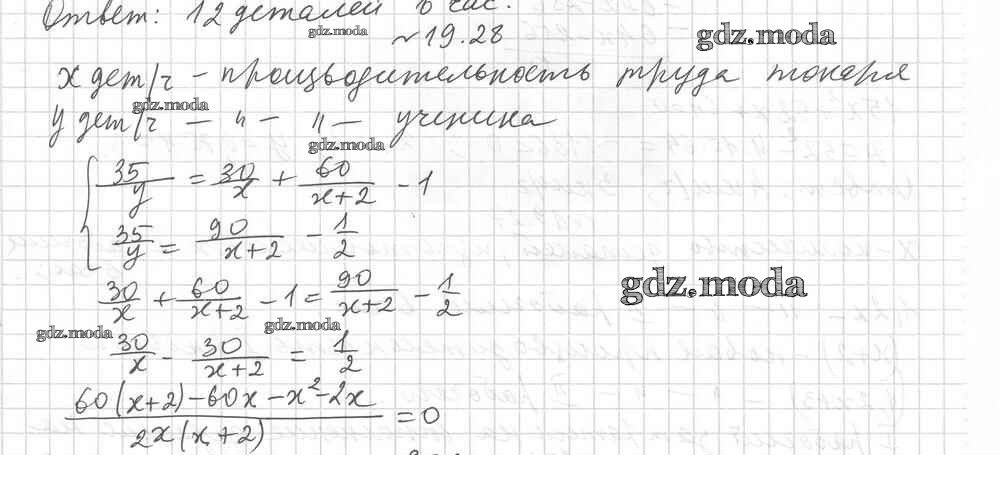 Ответ: 12 деталей в час.
gdz.moda
№19.28
gdz.moda
x дет/ч - производительность труда токаря
gdz.moda
y дет/ч — " — " — ученика
gdz.moda
35/y = 30/x + 60/(x+2) - 1
35/y = 90/(x+2) - 1/2
30/x + 60/(x+2) - 1 = 90/(x+2) - 1/2
gdz.moda
gdz.moda
gdz.moda
30/x - 30/(x+2) = 1/2
(60(x+2)-60x-x²-2x)/(2x(x+2)) = 0